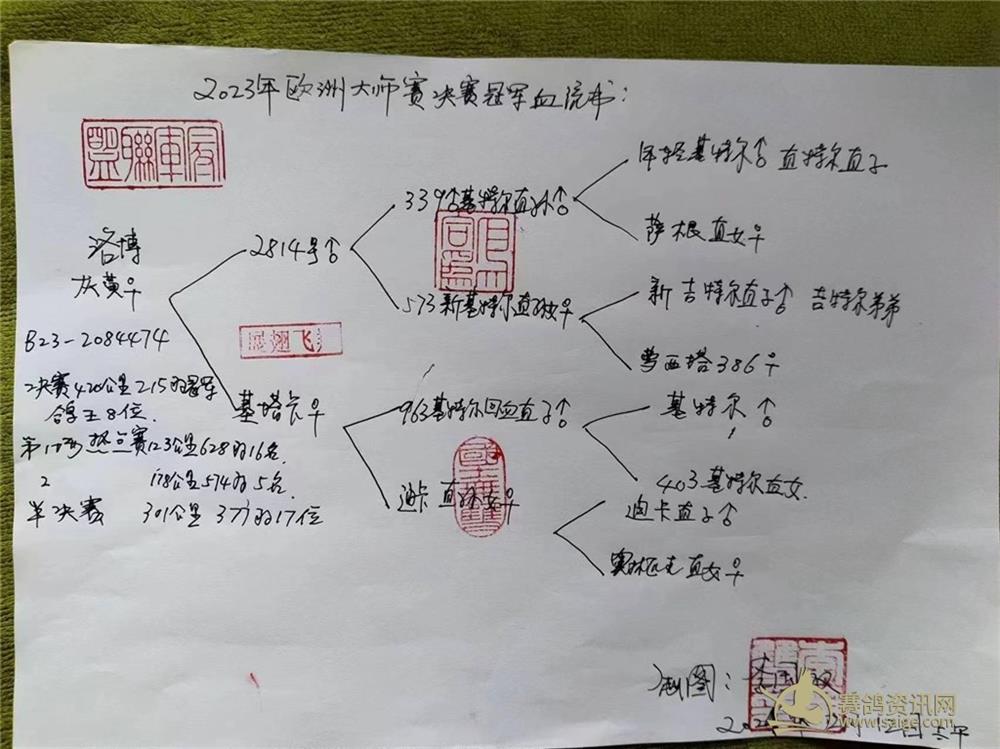 2023年欧洲大师赛决赛冠军血统书:
洛博
灰黄♀
B23-2084474
决赛420公里215羽冠军
鸽王8位.
第1场热点赛123公里628羽16名.
2 178公里574羽5名.
半决赛 301公里 377羽17位
2814号♂
基塔卡♀
339号基特尔直孙♂
573新基特尔直孙女♀
963基特尔回血直子♂
迪卡直孙女♀
年轻基特尔♂ 直特尔直子
萨根直女♀
新吉特尔直子♂ 吉特尔弟弟
梦西塔386♀
基特尔 ♂
403基特尔直女.
迪卡直子♂
直女♀
展翅飞
制图:
赛鸽资讯网
www.saige.com